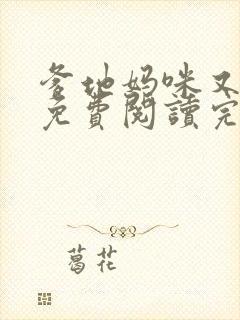 爹地妈咪又
免費閱讀完
葛花